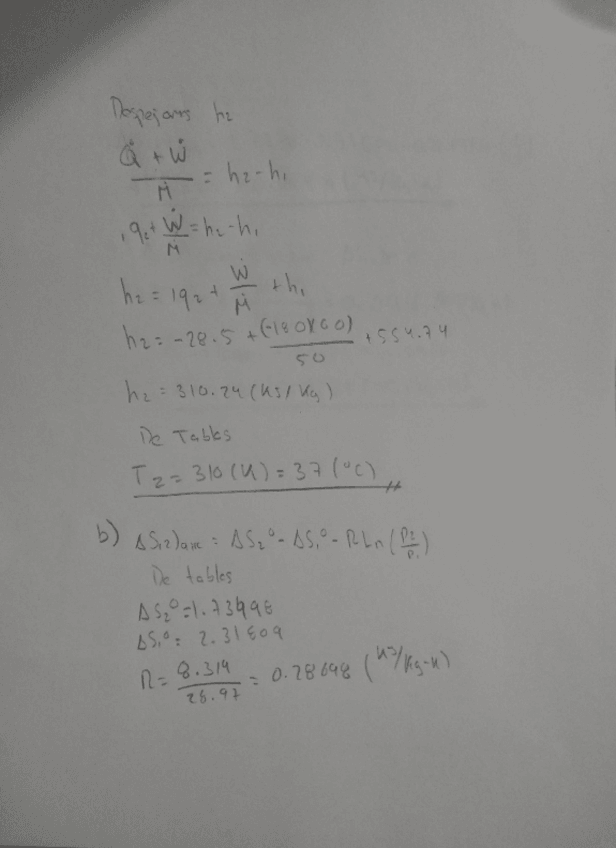 Despejams h2
Q̇ + Ẇ / Ṁ = h2-h1
1q2+ Ẇ/M = h2-h1
h2 = 1q2 + Ẇ/Ṁ + h1
h2 = -28.5 + (-180)(60) / 50 + 554.74
h2 = 310.24 (KJ/Kg)
De Tablas
T2 = 310 (K) = 37 (°C)
b) ΔS12)aire = ΔS2° - ΔS1° - R Ln (P2/P1)
De tablas
ΔS2° = 1.73498
ΔS1° = 2.31809
R = 8.314 / 28.97 = 0.28698 (KJ/Kg-K)